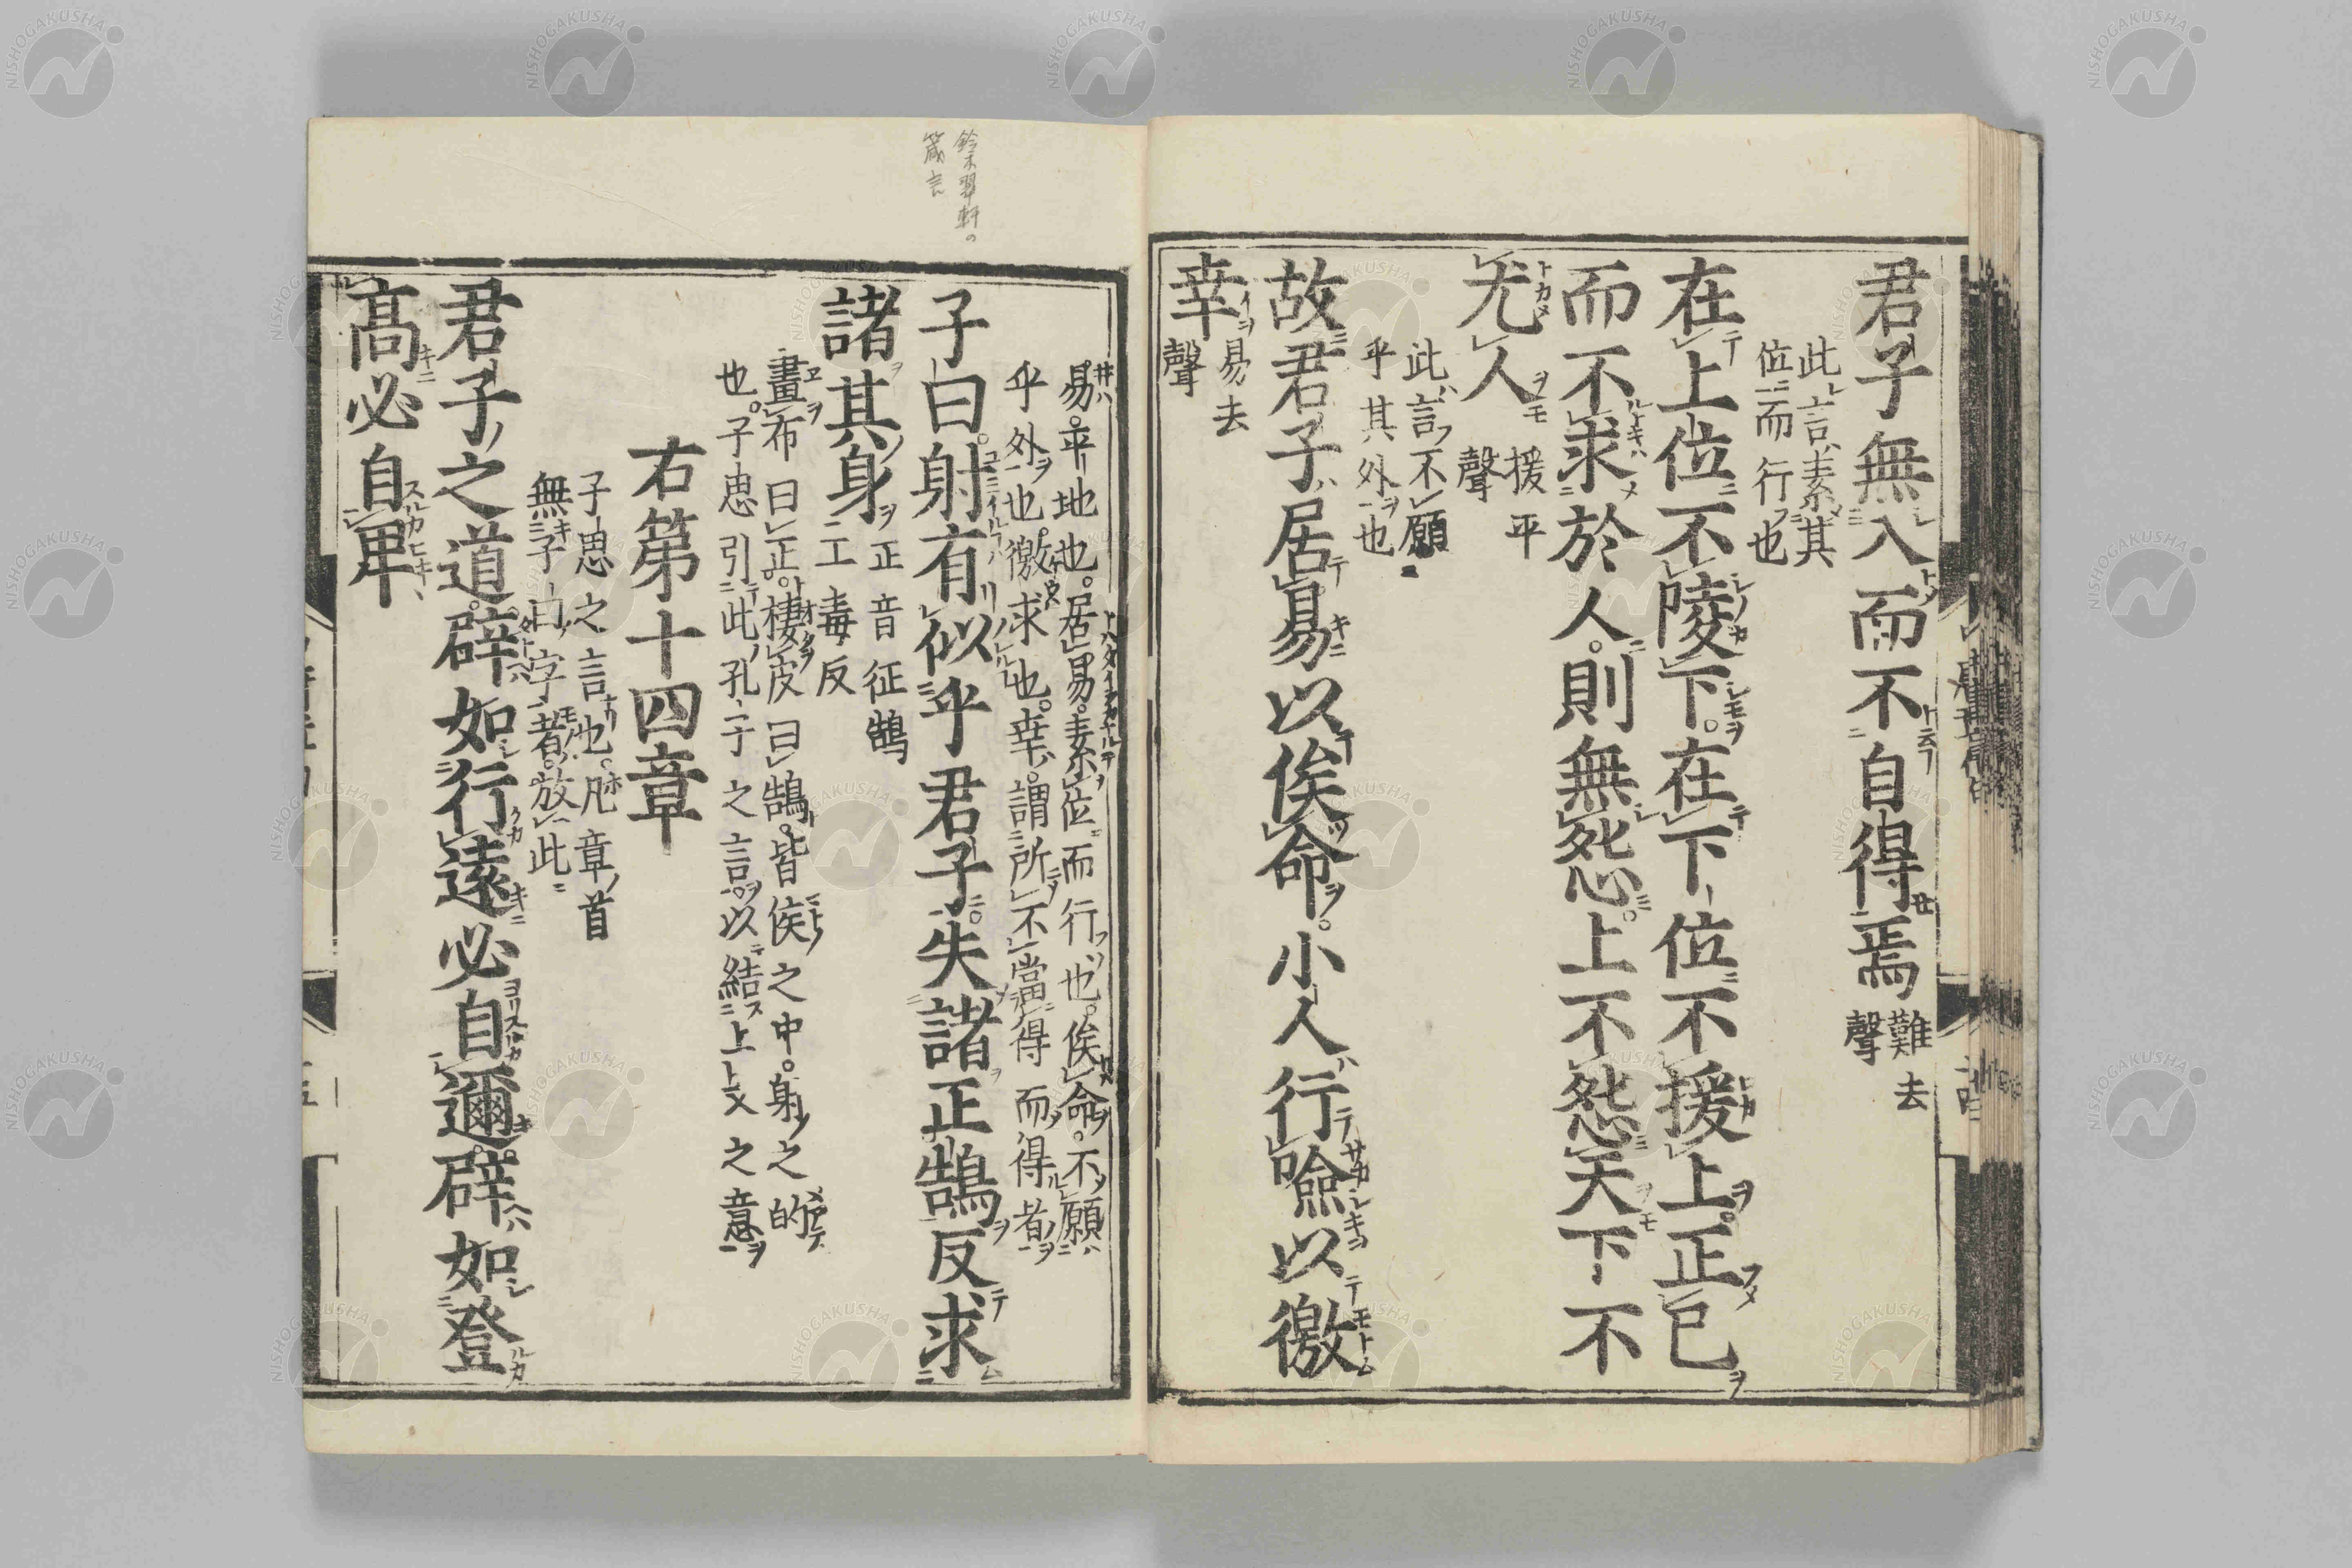 君子無入而不自得焉 難去
聲
此言素其
位而行也
在上位不陵下在下位不援上正己
而不求於人則無怨上不怨天下不
尤人 援平
聲
此言不願
乎其外也
故君子居易以俟命小人行險以徼
幸 易去
聲
易平地也居易素位而行也俟命不願
乎外也徼求也幸謂所不當得而得者
子曰射有似乎君子失諸正鵠反求
諸其身 正音征鵠
工毒反
畫布曰正棲皮曰鵠皆侯之中射之的
也子思引此孔子之言以結上文之意
右第十四章
子思之言也凡章首
無子曰字者放此
君子之道辟如行遠必自邇辟如登
高必自卑
鈴木翠軒の
箴言
NISHOGAKUSHA